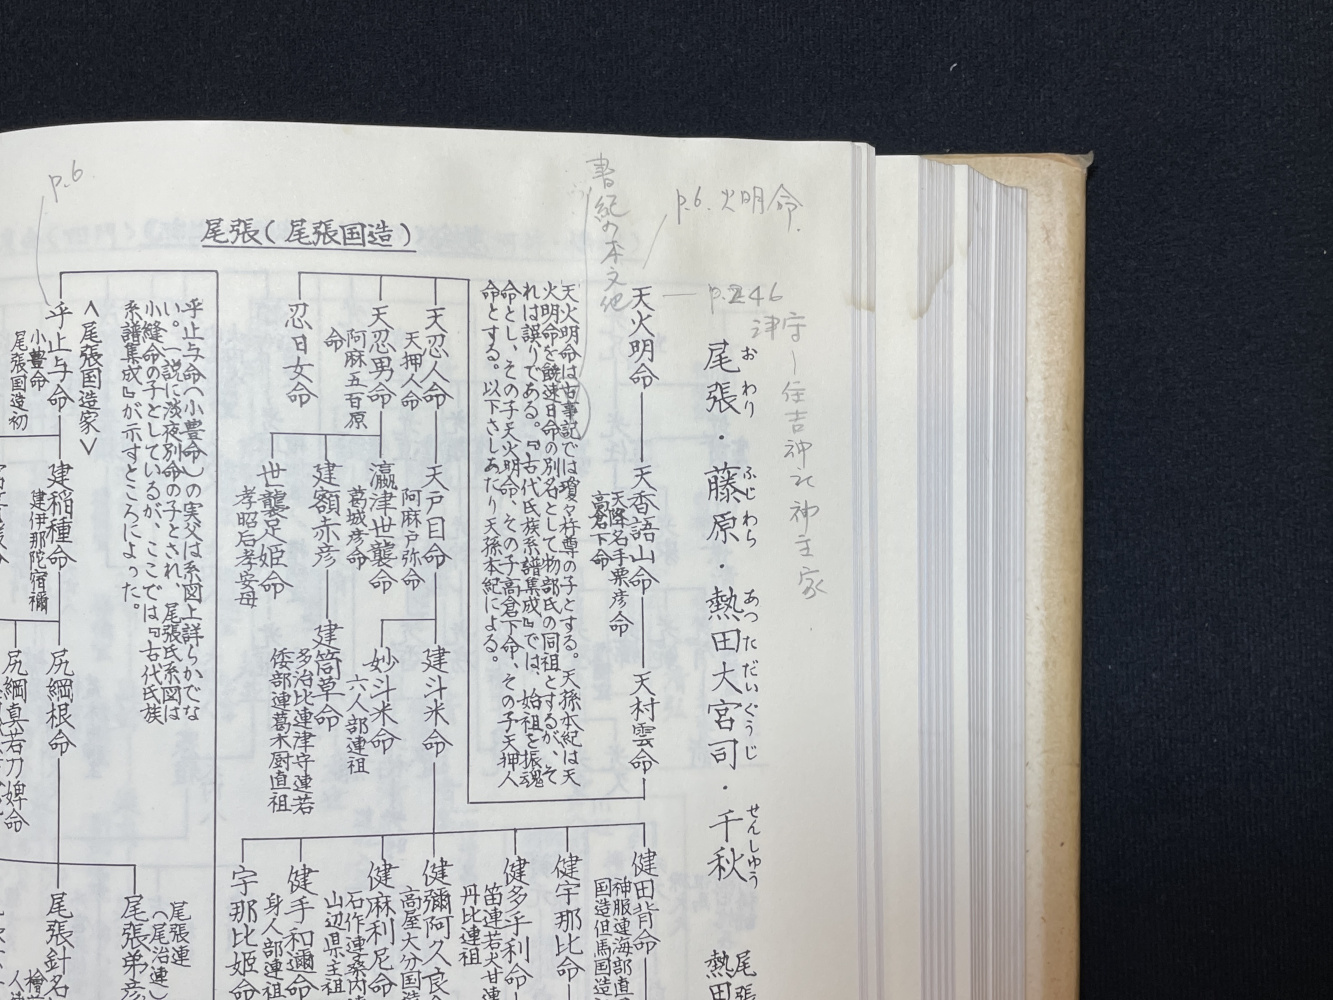 p.6
書紀の本文他
p.6. 火明命.
p.246
津守－住吉神社神主家.
尾張（尾張国造）
尾張・藤原・熱田大宮司・千秋
おわり
ふじわら
あつただいぐうじ
せんしゅう
尾張
熱田
天火明命
天香語山命
天降名手栗彦命
高倉下命
天村雲命
天火明命は古事記では瓊々杵尊の子とする。天孫本紀は天
火明命を饒速日命の別名として物部氏の同祖とするが、そ
れは誤りである。『古代氏族系譜集成』では、始祖を振魂
命とし、その子天火明命、その子高倉下命、その子天押人
命とする。以下さしあたり天孫本紀による。
天忍人命
天押人命
天戸目命
阿麻戸弥命
建斗米命
妙斗米命
六人部連祖
天忍男命
阿麻五百原
命
瀛津世襲命
葛城彦命
建額赤彦
建筒草命
多治比連津守連若
倭部連葛木厨直祖
世襲足姫命
孝昭后孝安母
忍日女命
健田背命
神服連海部直
国造但馬国造
健宇那比命
健多乎利命
笛連若犬甘連
丹比連祖
健彌阿久良命
高屋大分国造
健麻利尼命
石作連桑内連
山辺県主祖
健手和邇命
身人部連祖
宇那比姫命
乎止与命（小豊命）の実父は系図上詳らかでな
い。一説に淡夜別命の子とされ、尾張氏系図は
小縫命の子としているが、ここでは『古代氏族
系譜集成』が示すところによった。
〈尾張国造家〉
乎止与命
小豊命
尾張国造初
建稲種命
建伊那陀宿禰
尻綱根命
尻綱真若刀婢命
尾張弟彦
尾張連
（尾治連）
尾張針名